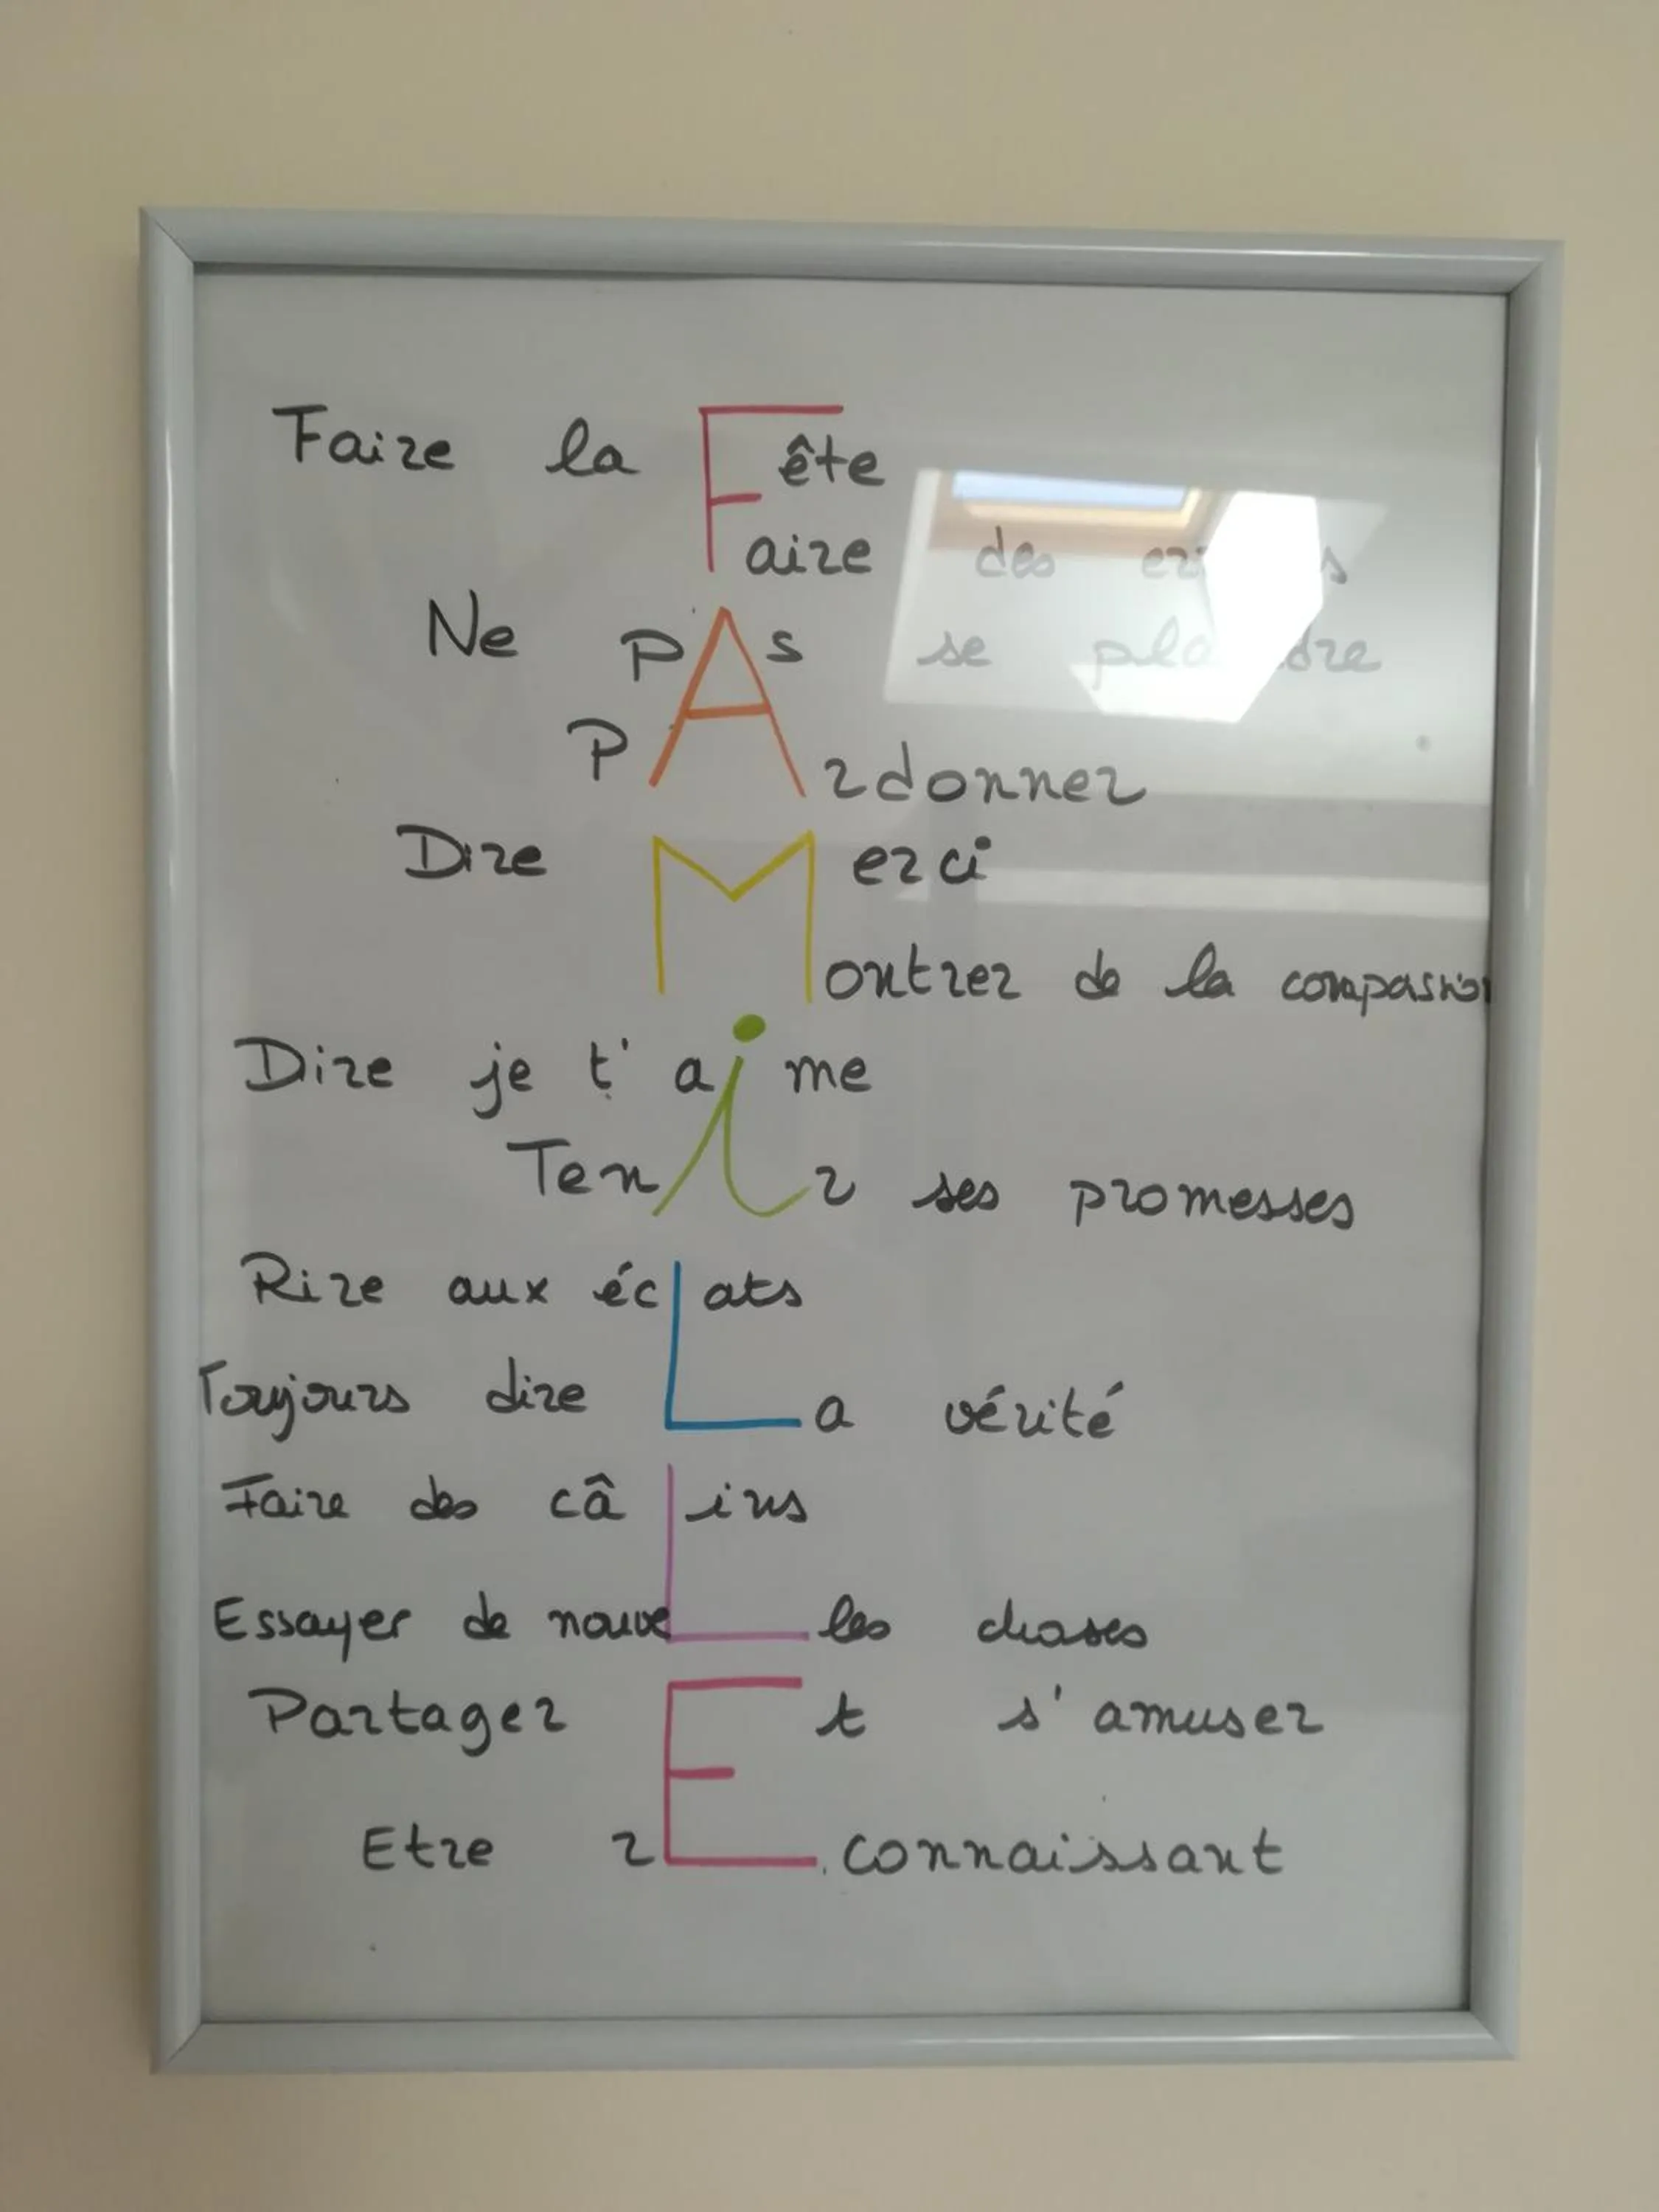 Faire la Fête
Faire des
Ne pAs se
PArdonner
Dire Merci
Montrer de la compassion
Dire je t'aime
Tenir ses promesses
Rire aux écLats
Toujours dire La vérité
Faire des câLins
Essayer de nouveLles choses
Partager Et s'amuser
Etre rEconnaissant